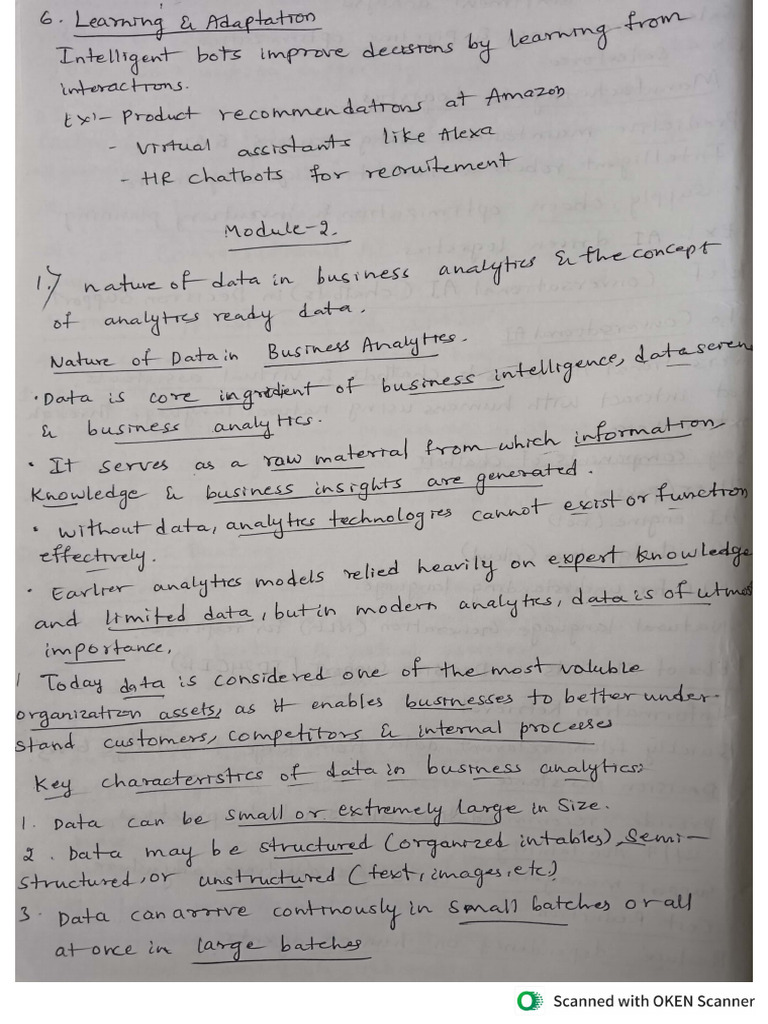 6. Learning & Adaptation
Intelligent bots improve decisions by learning from
interactions.
Ex:- Product recommendations at Amazon
- Virtual assistants like Alexa
- HR Chatbots for recruitement
Module-2.
1.) nature of data in business analytics & the concept
of analytics ready data.
Nature of Data in Business Analytics.
• Data is core ingredient of business intelligence, data scien
& business analytics.
• It serves as a raw material from which information,
Knowledge & business insights are generated.
• without data, analytics technologies cannot exist or function
effectively.
• Earlier analytics models relied heavily on expert knowledge
and limited data, but in modern analytics, data is of utmos
importance.
Today data is considered one of the most valuble
organization assets, as it enables businesses to better under-
stand customers, competitors & internal processes
Key characteristics of data in business analytics:
1. Data can be small or extremely large in size.
2. Data may be structured (organized in tables), Semi-
structured, or unstructured (text, images, etc.)
3. Data can arrive continously in small batches or all
at once in large batches
Scanned with OKEN Scanner